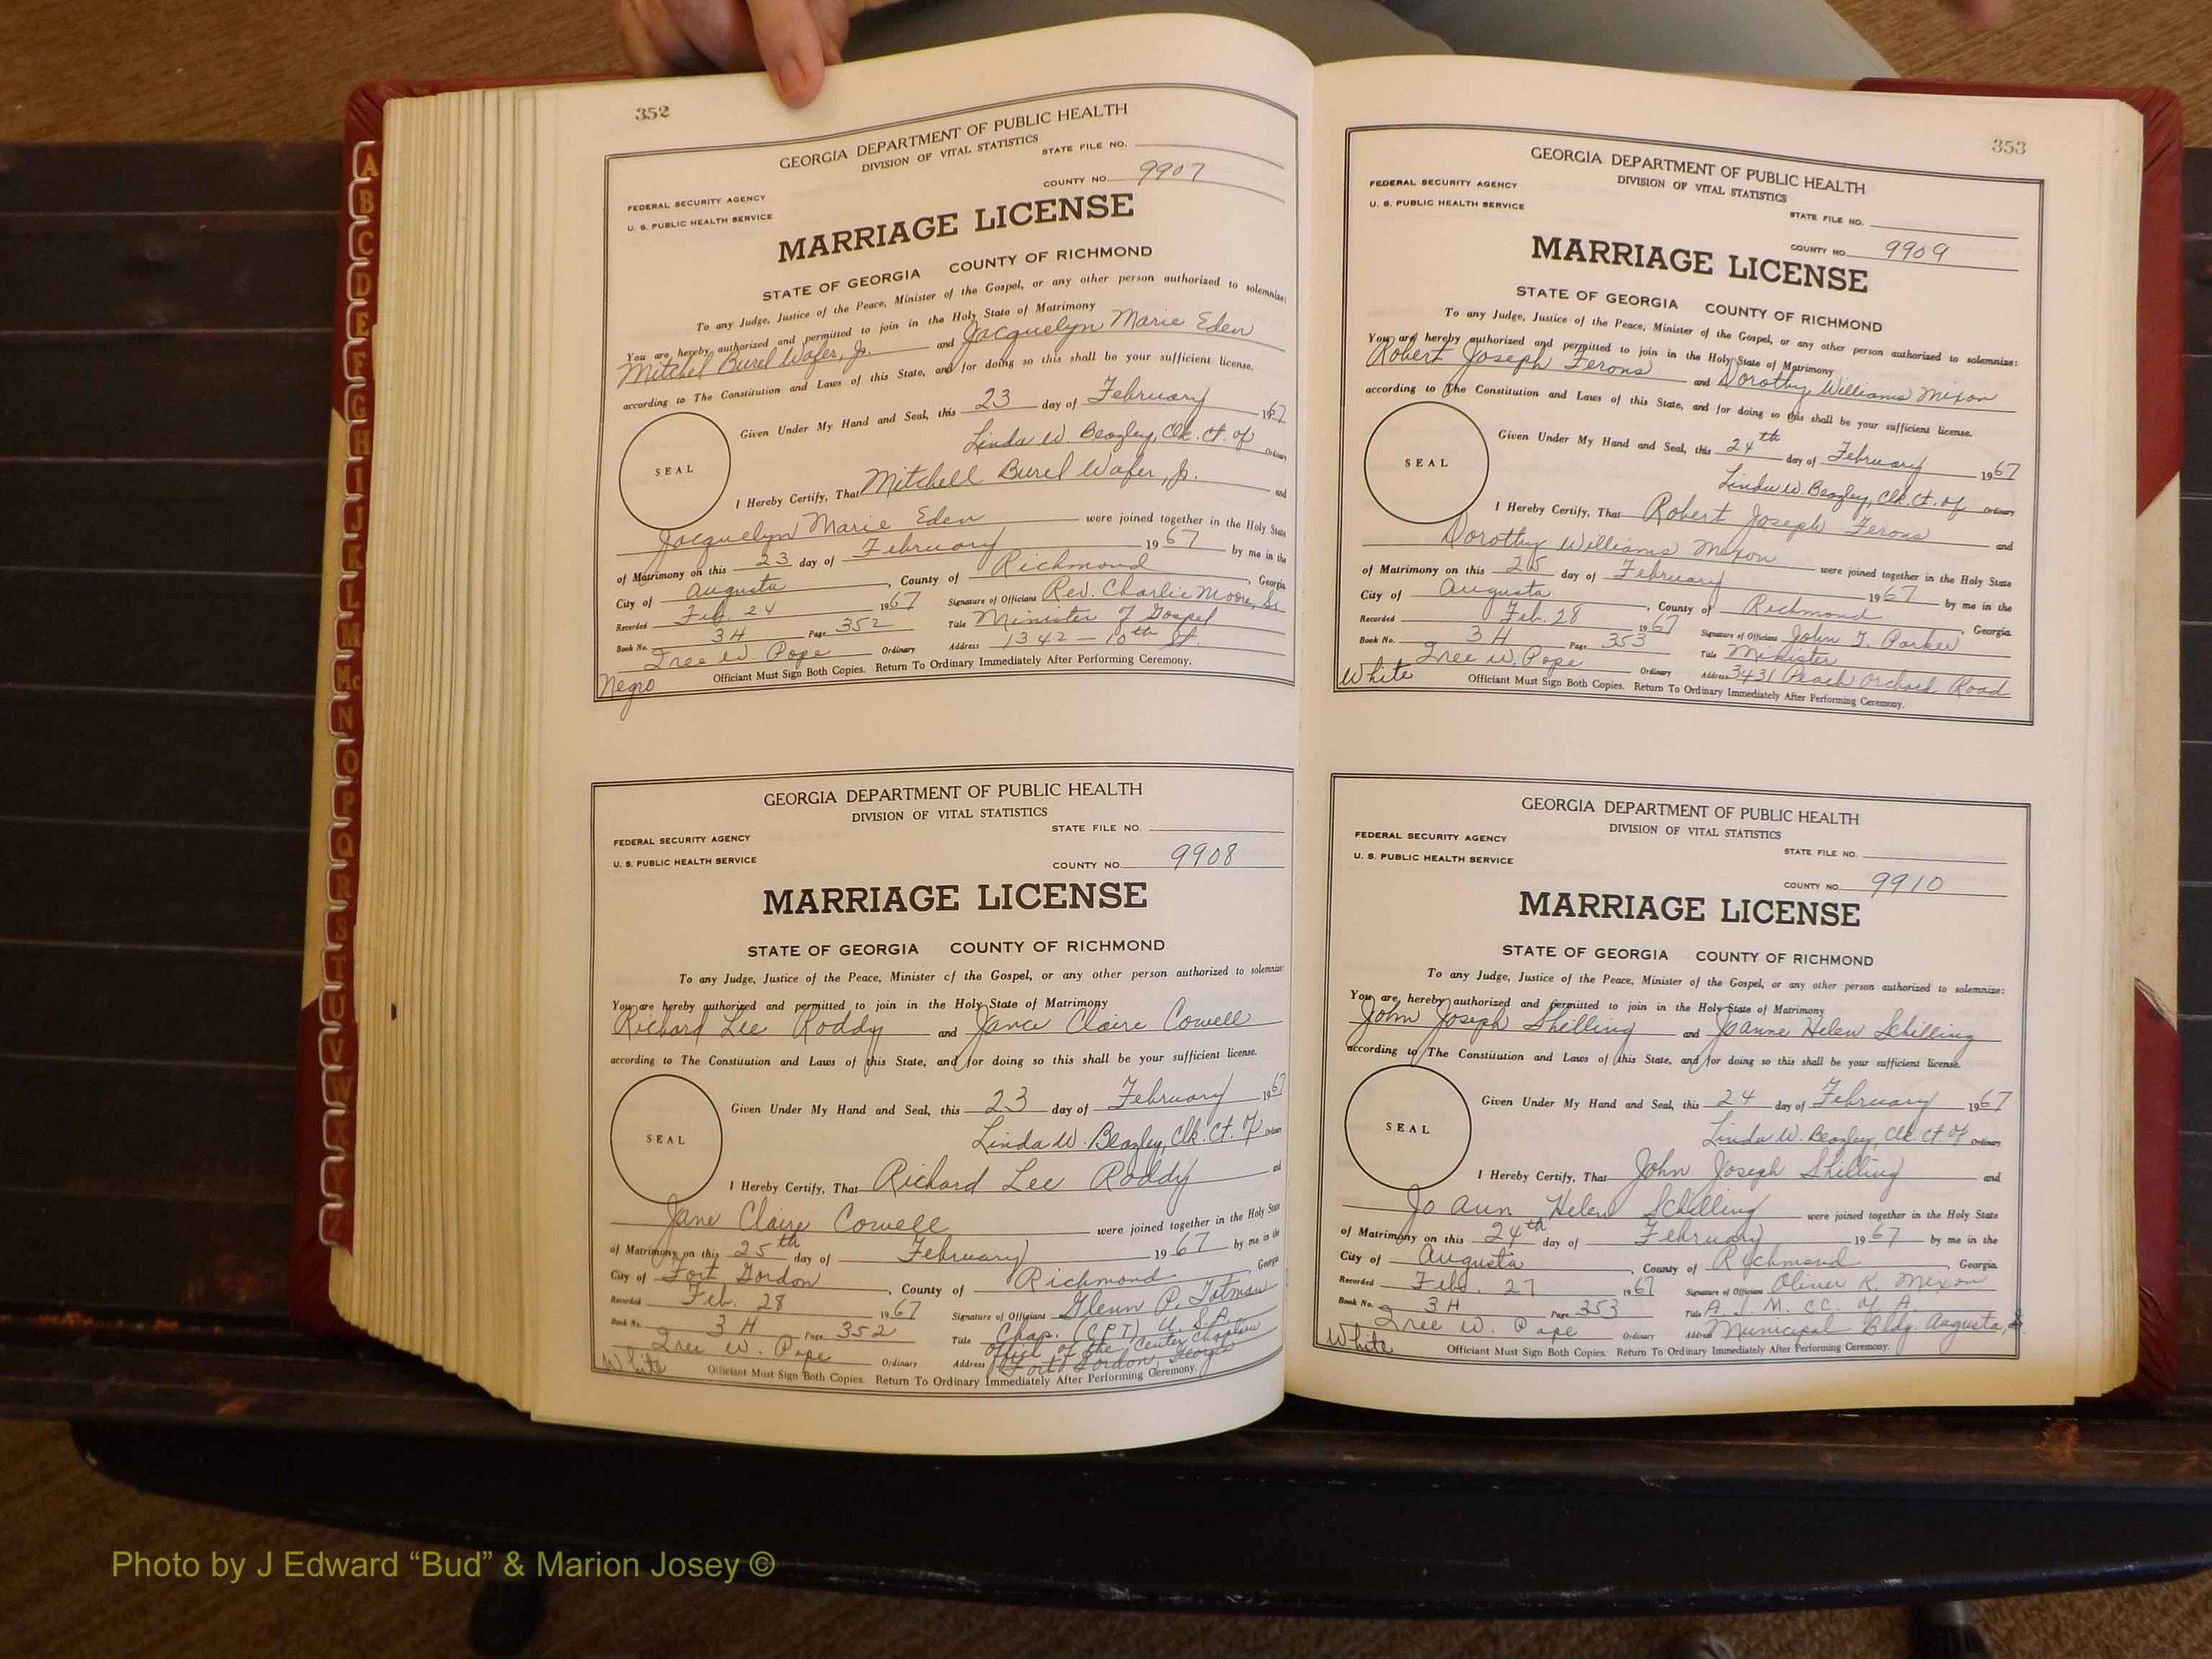 352
GEORGIA DEPARTMENT OF PUBLIC HEALTH
DIVISION OF VITAL STATISTICS
STATE FILE NO.
COUNTY NO. 9907
FEDERAL SECURITY AGENCY
U. S. PUBLIC HEALTH SERVICE
MARRIAGE LICENSE
STATE OF GEORGIA COUNTY OF RICHMOND
To any Judge, Justice of the Peace, Minister of the Gospel, or any other person authorized to solemnize:
You are hereby authorized and permitted to join in the Holy State of Matrimony
Mitchel Burel Wafer, Jr. and Jacquelyn Marie Eden
according to The Constitution and Laws of this State, and for doing so this shall be your sufficient license.
Given Under My Hand and Seal, this 23 day of February 1967
Linda W. Beazley, Clk. Ct. of Ordinary
SEAL
I Hereby Certify, That Mitchell Burel Wafer, Jr. and
Jacquelyn Marie Eden were joined together in the Holy State
of Matrimony on this 23 day of February 1967 by me in the
City of Augusta, County of Richmond, Georgia
Recorded Feb. 24 1967 Signature of Officiant Rev. Charlie Moore, Sr.
Book No. 3H Page 352 Title Minister of Gospel
Iree W. Pope Ordinary Address 1342 - 10th St.
Negro Officiant Must Sign Both Copies. Return To Ordinary Immediately After Performing Ceremony.
GEORGIA DEPARTMENT OF PUBLIC HEALTH
DIVISION OF VITAL STATISTICS
STATE FILE NO.
FEDERAL SECURITY AGENCY
U. S. PUBLIC HEALTH SERVICE
COUNTY NO. 9908
MARRIAGE LICENSE
STATE OF GEORGIA COUNTY OF RICHMOND
To any Judge, Justice of the Peace, Minister of the Gospel, or any other person authorized to solemnize:
You are hereby authorized and permitted to join in the Holy State of Matrimony
Richard Lee Roddy and Jance Claire Cowell
according to The Constitution and Laws of this State, and for doing so this shall be your sufficient license.
Given Under My Hand and Seal, this 23 day of February 1967
Linda W. Beazley, Clk. Ct. of Ordinary
SEAL
I Hereby Certify, That Richard Lee Roddy and
Jane Claire Cowell were joined together in the Holy State
of Matrimony on this 25th day of February 1967 by me in the
City of Fort Gordon, County of Richmond, Georgia
Recorded Feb. 28 1967 Signature of Officiant Glenn P. Totman
Book No. 3H Page 352 Title Chap. (CPT) U.S.A.
Office of the Center Chaplain
Iree W. Pope Ordinary Address Fort Gordon, Georgia
White Officiant Must Sign Both Copies. Return To Ordinary Immediately After Performing Ceremony.
353
GEORGIA DEPARTMENT OF PUBLIC HEALTH
DIVISION OF VITAL STATISTICS
FEDERAL SECURITY AGENCY
U. S. PUBLIC HEALTH SERVICE
STATE FILE NO.
COUNTY NO. 9909
MARRIAGE LICENSE
STATE OF GEORGIA COUNTY OF RICHMOND
To any Judge, Justice of the Peace, Minister of the Gospel, or any other person authorized to solemnize:
You are hereby authorized and permitted to join in the Holy State of Matrimony
Robert Joseph Ferons and Dorothy Williams Mixon
according to The Constitution and Laws of this State, and for doing so this shall be your sufficient license.
Given Under My Hand and Seal, this 24th day of February 1967
Linda W. Beazley, Clk. Ct. of Ordinary
SEAL
I Hereby Certify, That Robert Joseph Ferons and
Dorothy Williams Mixon were joined together in the Holy State
of Matrimony on this 25 day of February 1967 by me in the
City of Augusta, County of Richmond, Georgia
Recorded Feb. 28 1967 Signature of Officiant John T. Parker
Book No. 3H Page 353 Title Minister
Iree W. Pope Ordinary Address 3431 Peach Orchard Road
White Officiant Must Sign Both Copies. Return To Ordinary Immediately After Performing Ceremony.
GEORGIA DEPARTMENT OF PUBLIC HEALTH
DIVISION OF VITAL STATISTICS
FEDERAL SECURITY AGENCY
U. S. PUBLIC HEALTH SERVICE
STATE FILE NO.
COUNTY NO. 9910
MARRIAGE LICENSE
STATE OF GEORGIA COUNTY OF RICHMOND
To any Judge, Justice of the Peace, Minister of the Gospel, or any other person authorized to solemnize:
You are hereby authorized and permitted to join in the Holy State of Matrimony
John Joseph Shilling and Joanne Helen Schilling
according to The Constitution and Laws of this State, and for doing so this shall be your sufficient license.
Given Under My Hand and Seal, this 24 day of February 1967
Linda W. Beazley, Clk. Ct. of Ordinary
SEAL
I Hereby Certify, That John Joseph Shilling and
Jo Ann Helen Schilling were joined together in the Holy State
of Matrimony on this 24th day of February 1967 by me in the
City of Augusta, County of Richmond, Georgia
Recorded Feb. 27 1967 Signature of Officiant Oliver K. Mixon
Book No. 3H Page 353 Title A. J. M. CC. of A.
Iree W. Pope Ordinary Address Municipal Bldg. Augusta,
White Officiant Must Sign Both Copies. Return To Ordinary Immediately After Performing Ceremony.
A
B
C
D
E
F
G
H
I
J
K
L
M
Mc
N
O
P
Q
R
S
T
U
V
W
Z
Photo by J Edward “Bud” & Marion Josey ©